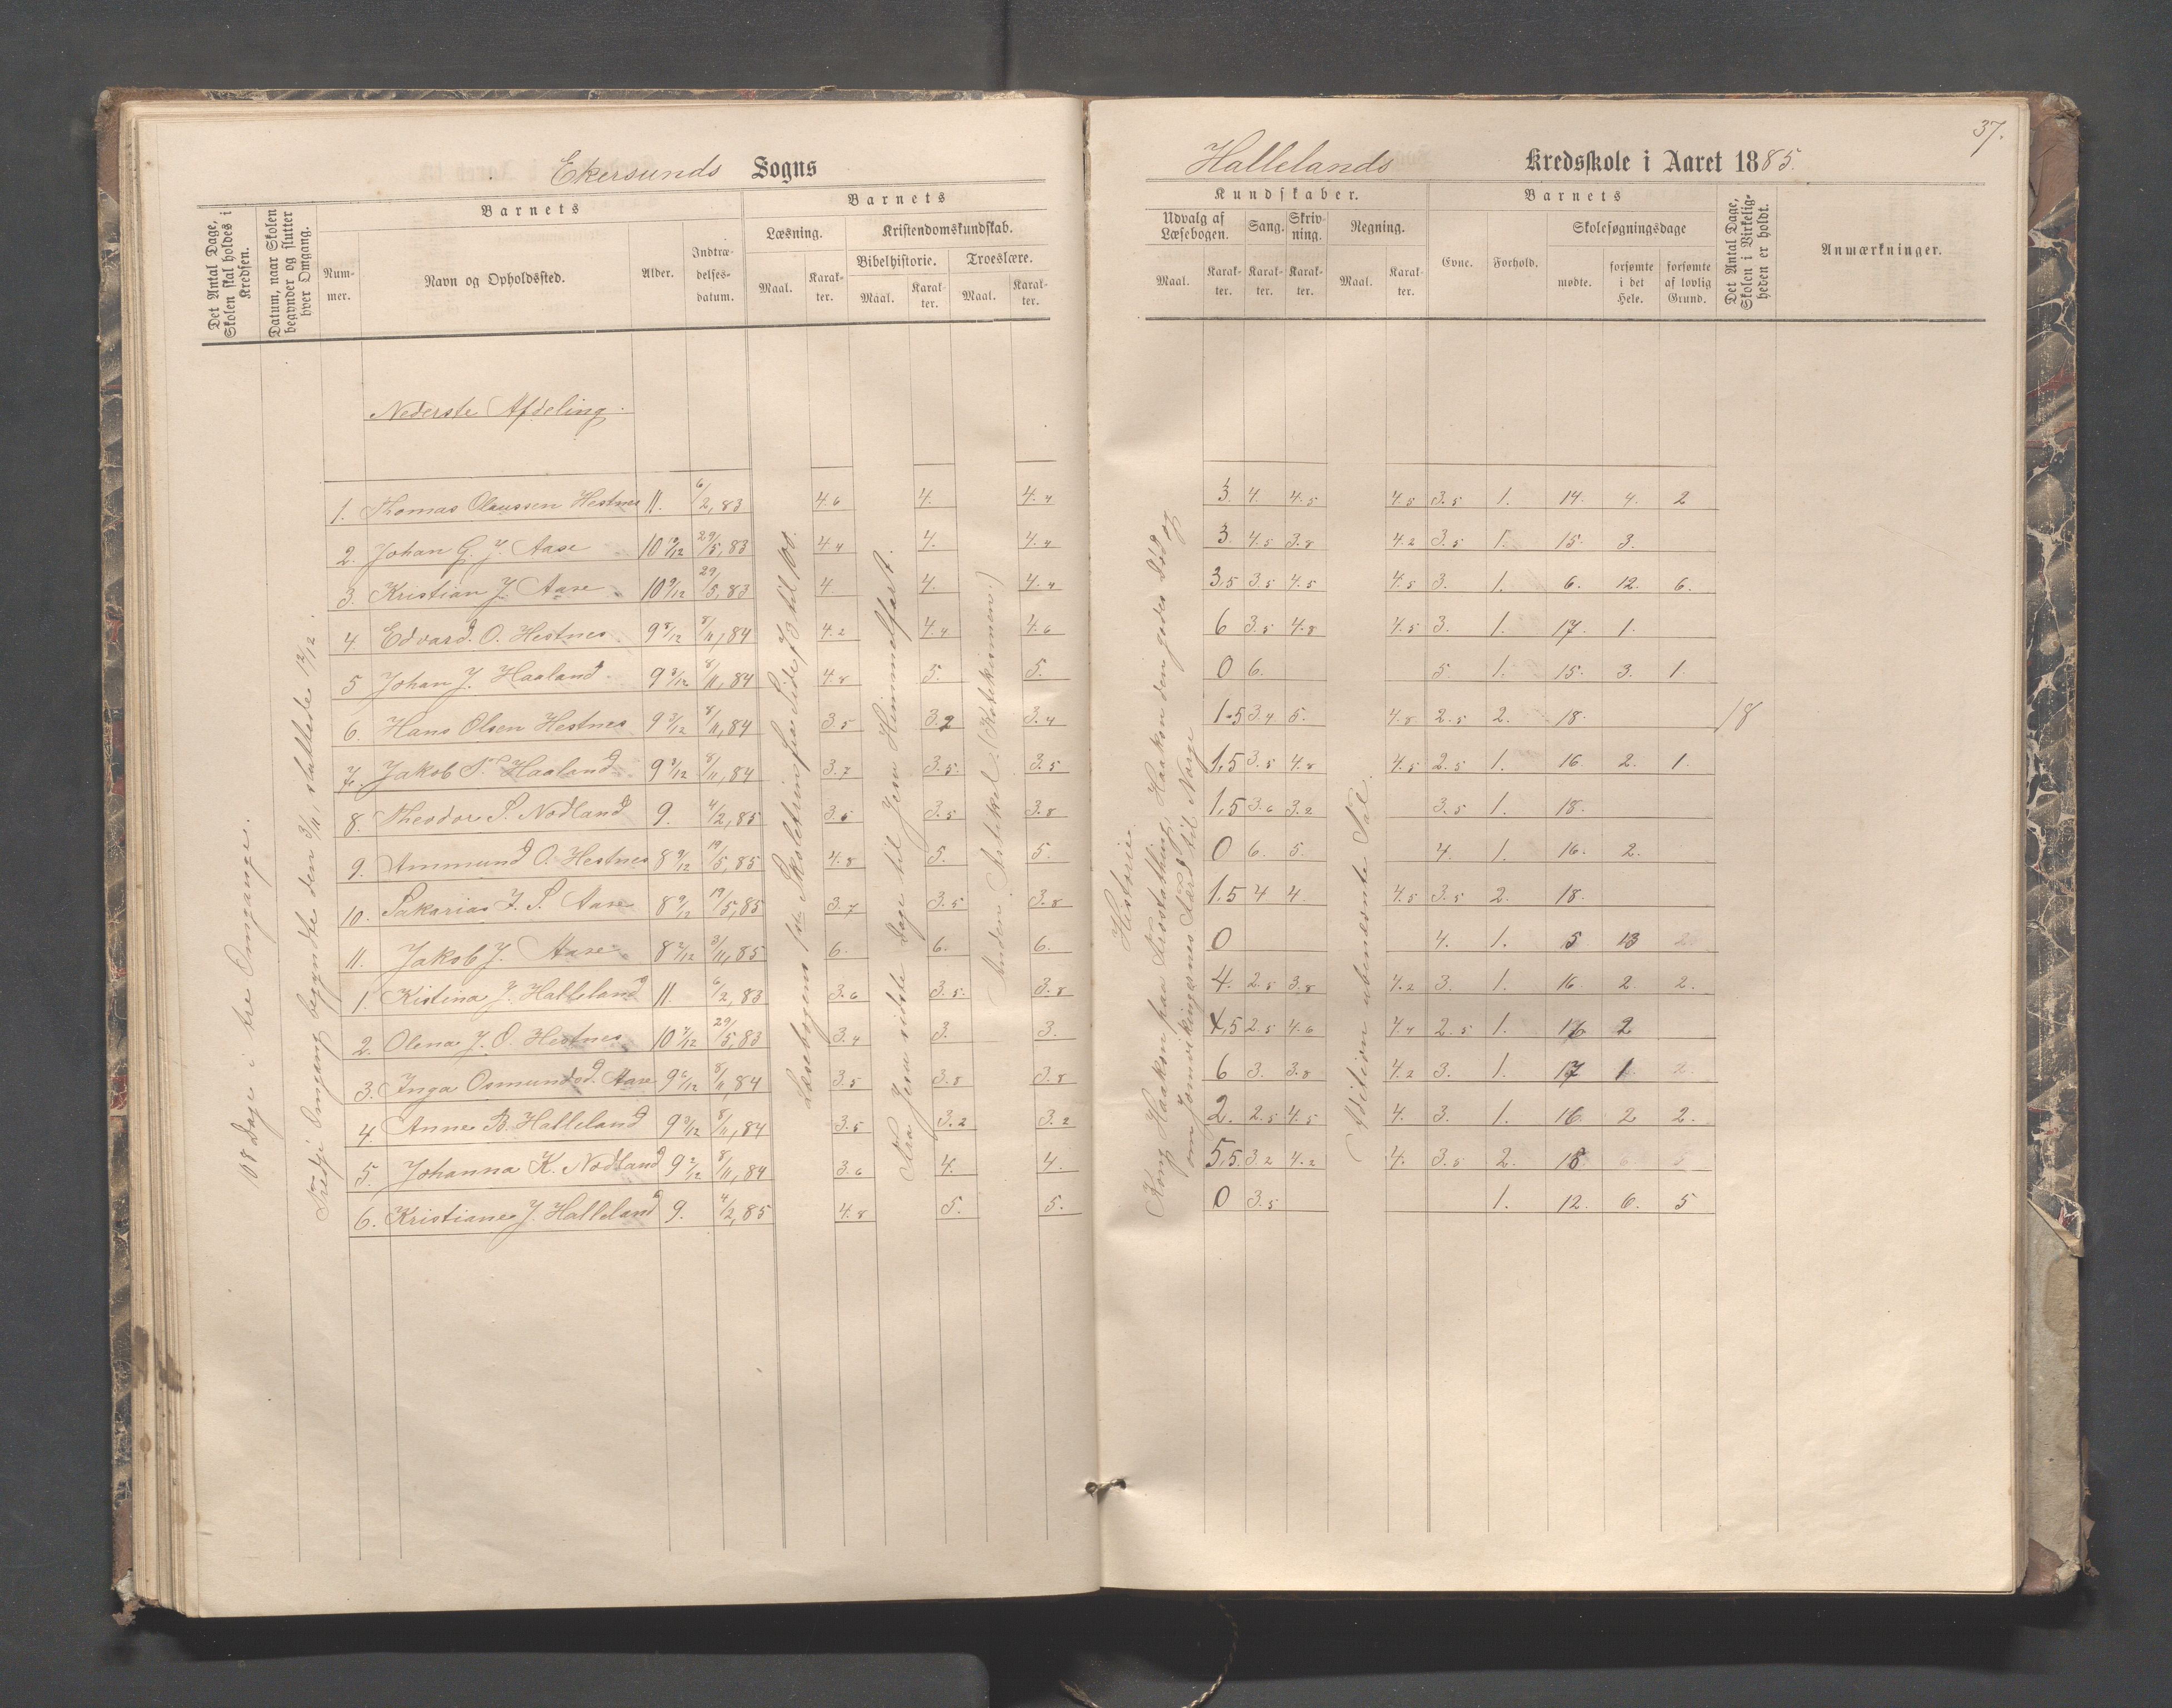 37.
Ekersunds Sogns
Hallelands Kredsskole i Aaret 1885.
Det Antal Dage, Skolen skal holdes i Kredsen.
Datum, naar Skolen begynder og slutter hver Omgang.
Barnets
Nummer.
Navn og Opholdssted.
Alder.
Indtrædelses-datum.
Barnets
Læsning.
Maal.
Karakter.
Kristendomskundskab.
Bibelhistorie.
Maal.
Karakter.
Troeslære.
Maal.
Karakter.
Kundskaber.
Udvalg af Læsebogen.
Maal.
Karakter.
Sang.
Karakter.
Skrivning.
Karakter.
Regning.
Maal.
Karakter.
Barnets
Evne.
Forhold.
Skolesøgningsdage
mødte.
forsømte i det Hele.
forsømte af lovlig Grund.
Det Antal Dage, Skolen i Virkeligheden er holdt.
Anmærkninger.
108 Dage i tre Omgange.
Tredje Omgang begyndte den 3/11, sluttede 12/12.
Læsebogens 1ste Skoletrin fra Side 73 til 100.
Fra Jesu sidste Dage til Jesu Himmelfart.
Anden Artikel. (Katekismen.)
Historie.
Kong Haakon paa Frostathing, Haakon den godes Død og
om Jomsvikingernes Færd til Norge
Addition ubenævnte Tal.
Nederste Afdeling.
1. Thomas Olaussen Hestnes 11. 6/2, 83 4.6 4. 4.4 3. 4. 4.5 4.5 3.5 1. 14. 4. 2
2. Johan G. J. Aase 10 10/12 29/5, 83 4.4 4. 4.4 3. 4.5 3.8 4.2 3.5 1. 15. 3.
3. Kristian J. Aase 10 9/12 29/5, 83 4. 4. 4.4 3,5 3.5 4.5 4.5 3. 1. 6. 12. 6.
4. Edvard. O. Hestnes 9 8/12 8/11, 84 4.2 4.4 4.6 6 3.5 4.8 4.5 3. 1. 17. 1.
5 Johan J. Haaland. 9 3/12 8/11, 84 4.8 5. 5. 0 6. 5. 1. 15. 3. 1.
6. Hans Olsen Hestnes 9 3/12 8/11, 84 3.5 3.2 3.4 1.5 3.4 5. 4.8 2.5 2. 18. 18
7. Jakob T. Haaland 9 2/12 8/11, 84 3.7 3.5. 3.5 1,5 3.5 4.8 4.5 2.5 1. 16. 2. 1.
8. Theodor S. Nodland 9. 4/2, 85 3.5 3.5 3.8 1,5 3.6 3.2 3.5 1. 18.
9. Ammund O. Hestnes 8 9/12 19/5, 85 4.8 5. 5. 0 6. 5. 4. 1. 16. 2.
10. Sakarias J. S. Aase 8 9/12 19/5, 85 3.7 3.5 3.8 1.5 4 4 4.5 3.5 2. 18.
11. Jakob J. Aase 8 2/12 3/11, 85 6. 6. 6. 0 4. 1. 5 13
1. Kistina J. Halleland 11. 6/2, 83 3.6 3.5. 3.8 4. 2.5 3.8 4.2 3. 1. 16. 2 2.
2. Olena J. O. Hestnes 10 7/12 29/5, 83 3.4 3. 3. 4,5 2.5 4.6 4.4 2.5 1. 16 2
3. Inga Osmundsd. Aase 9 6/12 8/11, 84 3.5 3.8 3.8 6 3. 3.8 4.2 3. 1. 17 1
4. Anne B. Halleland 9 3/12 8/11, 84 3.5 3.2 3.2 2. 2.5 4.5 4. 3. 1. 16. 2 2.
5. Johanna K. Nodland 9 2/12 8/11, 84 3.6 4. 4. 5,5. 3.2 4.2 4. 3.5 2. 18.
6. Kristiane J. Halleland 9. 4/2, 85 4.8 5. 5. 0 3.5 1. 12. 6. 5